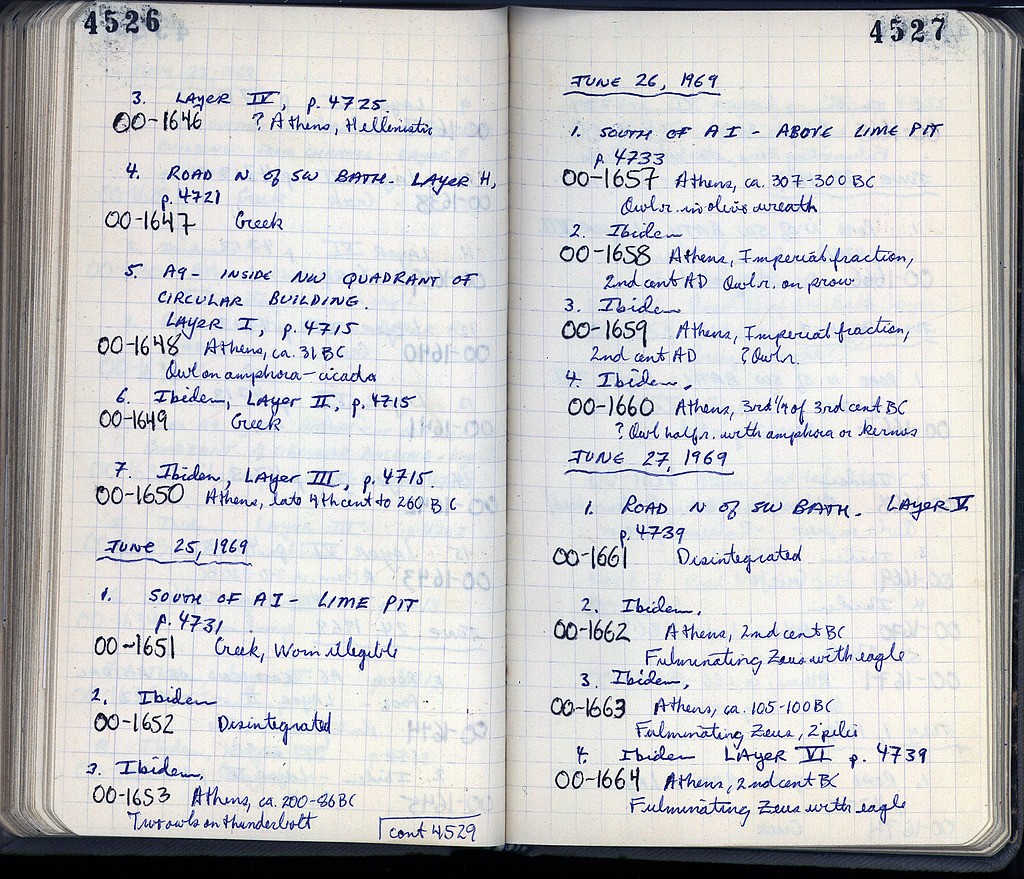 4526
3. LAYER IV, p. 4725.
OO-1646 ? Athens, Hellenistic
4. ROAD N OF SW BATH. LAYER H,
p. 4721
OO-1647 Greek
5. A9- INSIDE NW QUADRANT OF
CIRCULAR BUILDING.
LAYER I, p. 4715
OO-1648 Athens, ca. 31 BC
Owl on amphora - cicada
6. Ibidem, LAYER II, p. 4715
OO-1649 Greek
7. Ibidem, LAYER III, p. 4715.
OO-1650 Athens, late 4th cent to 260 BC
JUNE 25, 1969
1. SOUTH OF AI - LIME PIT
p. 4731
OO-1651 Greek, Worn illegible
2. Ibidem
OO-1652 Disintegrated
3. Ibidem,
OO-1653 Athens, ca. 200-86 BC
Two owls on thunderbolt
cont 4529
4527
JUNE 26, 1969
1. SOUTH OF AI - ABOVE LIME PIT
p. 4733
OO-1657 Athens, ca. 307-300 BC
Owl r. in olive wreath
2. Ibidem
OO-1658 Athens, Imperial fraction,
2nd cent AD Owl r. on prow
3. Ibidem
OO-1659 Athens, Imperial fraction,
2nd cent AD ? Owl r.
4. Ibidem,
OO-1660 Athens, 3rd 1/4 of 3rd cent BC
? Owl half r. with amphora or kernos
JUNE 27, 1969
1. ROAD N OF SW BATH. LAYER V
p. 4739
OO-1661 Disintegrated
2. Ibidem,
OO-1662 Athens, 2nd cent BC
Fulminating Zeus with eagle
3. Ibidem,
OO-1663 Athens, ca. 105-100 BC
Fulminating Zeus, 2 pilei
4. Ibidem LAYER VI p. 4739
OO-1664 Athens, 2nd cent BC
Fulminating Zeus with eagle